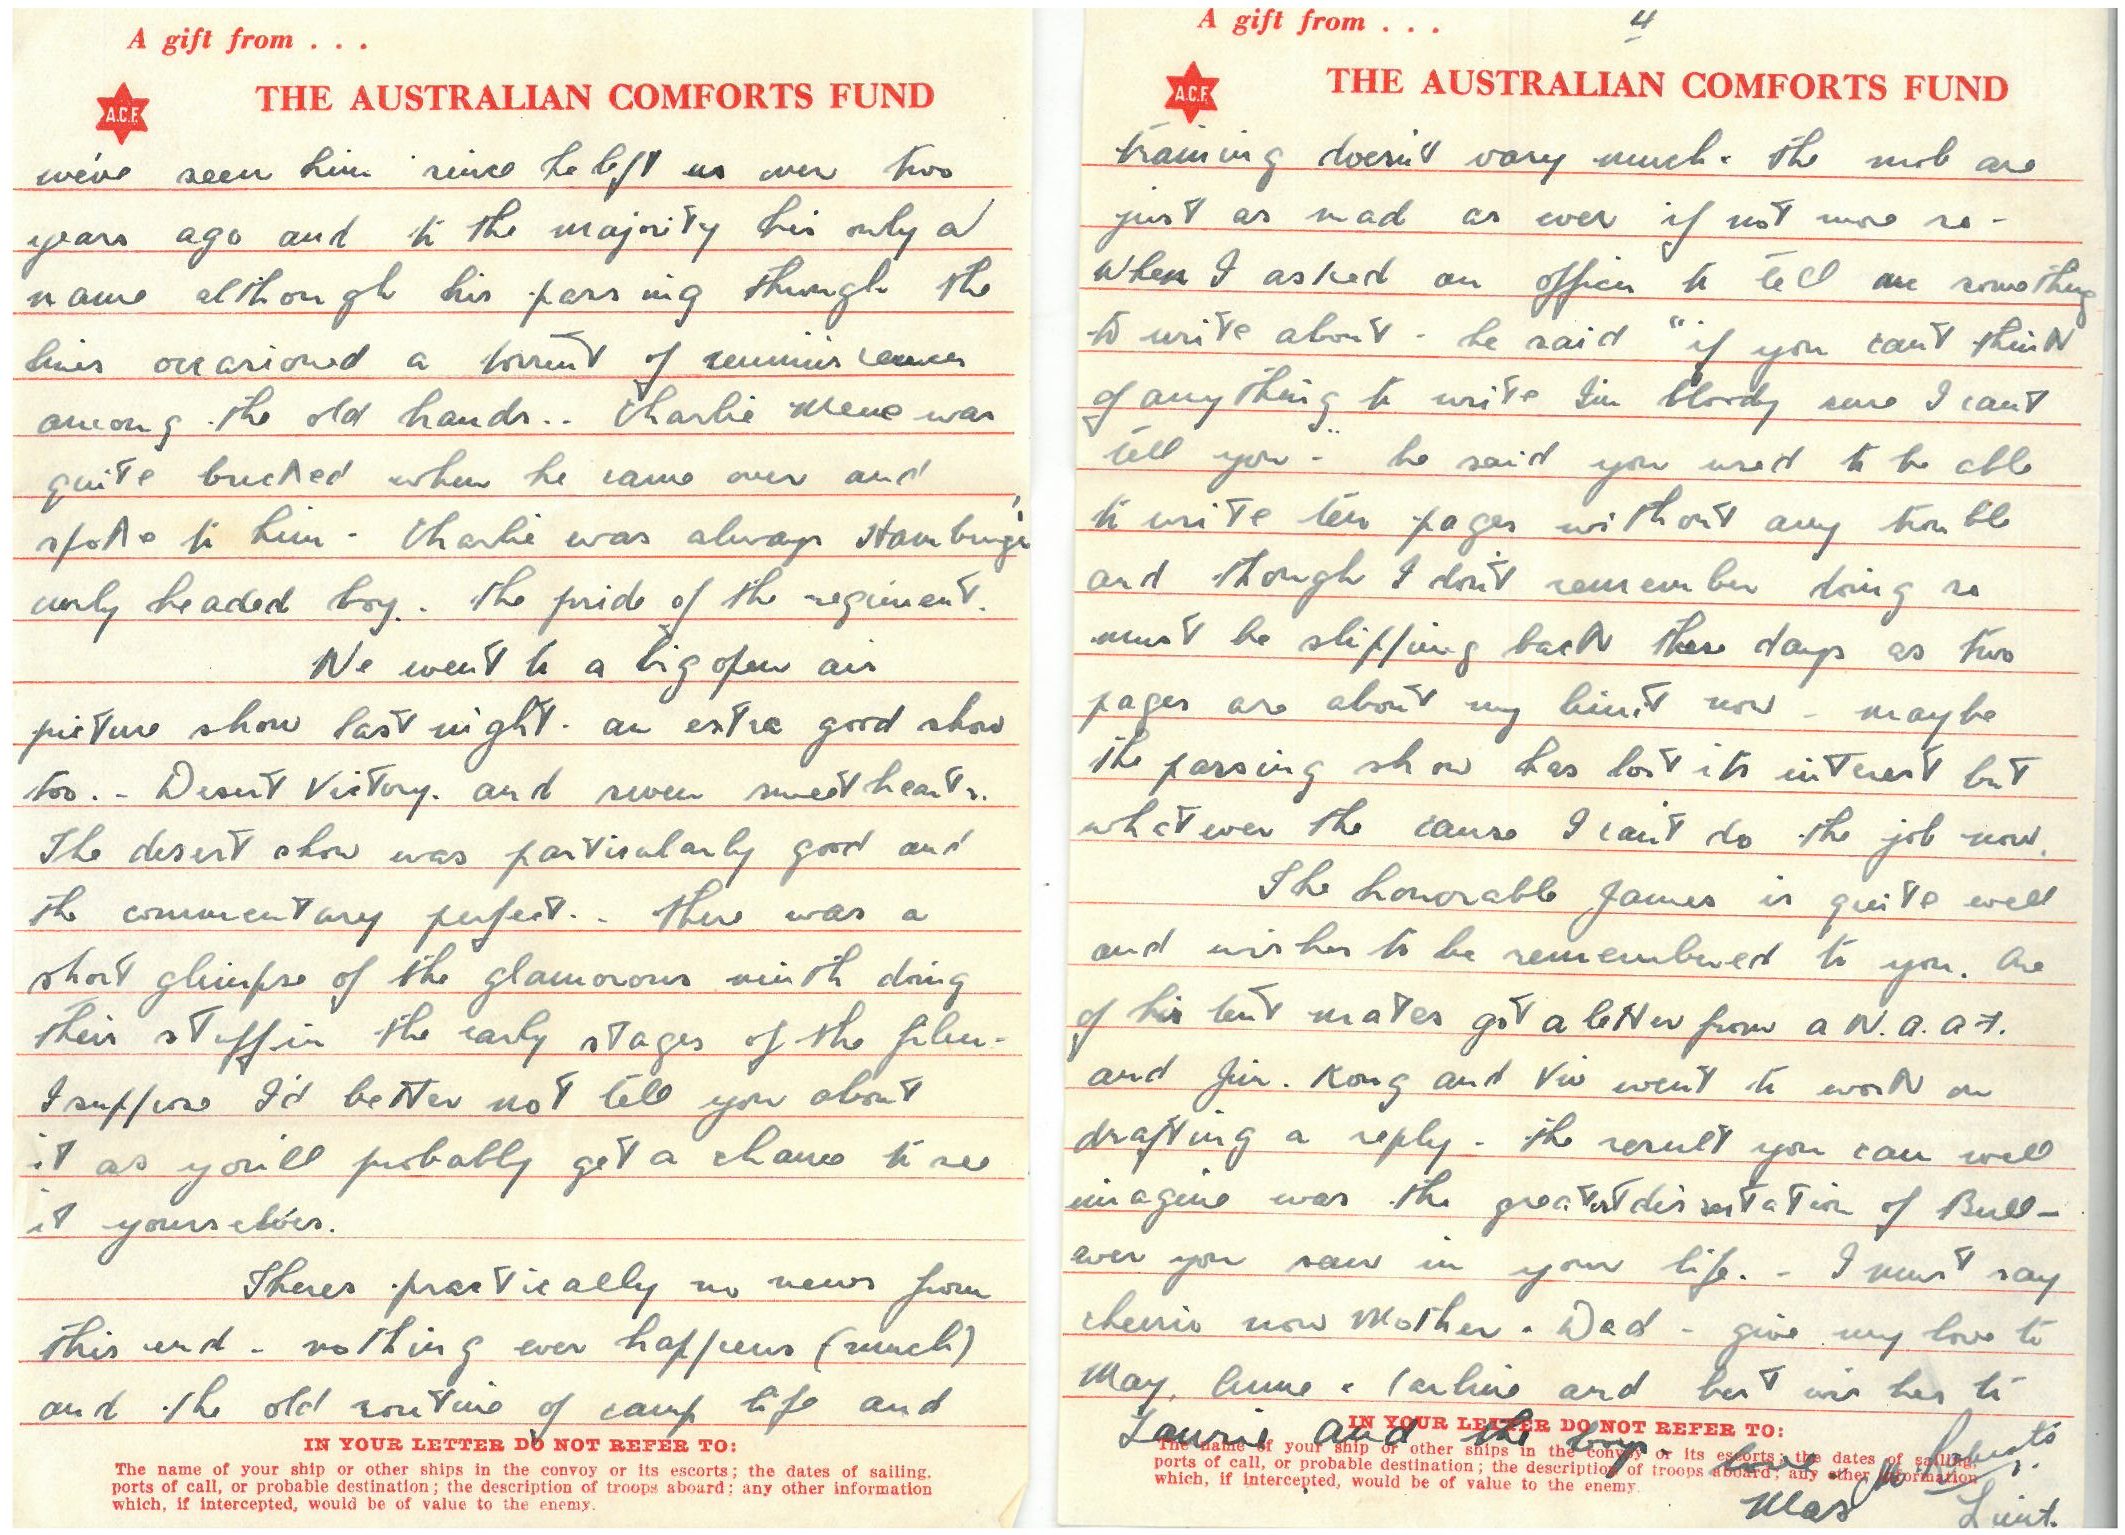 A gift from . . .
A.C.F.
THE AUSTRALIAN COMFORTS FUND
we've seen him since he left us over two
years ago and to the majority his only a
name although his passing through the
lines occasioned a torrent of reminiscences
among the old hands.. Charlie Mene was
quite bucked when he came over and
spoke to him - Charlie was always
curly headed boy. the pride of the regiment.
We went to a big open air
picture show last night. an extra good show
too. - Desert Victory. and seven sweethearts.
The desert show was particularly good and
the commentary perfect. - there was a
short glimpse of the glamorous ninth doing
their stuff in the early stages of the film -
I suppose I'd better not tell you about
it as you'll probably get a chance to see
it yourselves.
Theres practically no news from
this end - nothing ever happens (much)
and the old routine of camp life and
IN YOUR LETTER DO NOT REFER TO:
The name of your ship or other ships in the convoy or its escorts; the dates of sailing,
ports of call, or probable destination; the description of troops aboard; any other information
which, if intercepted, would be of value to the enemy.
A gift from . . .
4
A.C.F.
THE AUSTRALIAN COMFORTS FUND
training doesn't vary much. the mob are
just as mad as ever if not more so -
When I asked an officer to tell me something
to write about - he said "if you can't think
of anything to write I'm bloody sure I cant
tell you -" he said you used to be able
to write ten pages without any trouble
and though I don't remember doing so
must be slipping back these days as two
pages are about my limit now - maybe
the passing show has lost its interest but
whatever the cause I can't do the job now.
The honorable James is quite well
and wishes to be remembered to you. One
of his tent mates got a letter from a N.A.A.F.
and Jim. Kong and Viv went to work on
drafting a reply - the result you can well
imagine was the greatest dissertation of Bull -
ever you saw in your life. - I must say
cheerio now Mother. Dad - give my love to
May, Anne & Carline and best wishes to
Laurie and the boys. love
Mas
Lieut.
IN YOUR LETTER DO NOT REFER TO:
The name of your ship or other ships in the convoy or its escorts; the dates of sailing,
ports of call, or probable destination; the description of troops aboard; any other information
which, if intercepted, would be of value to the enemy.